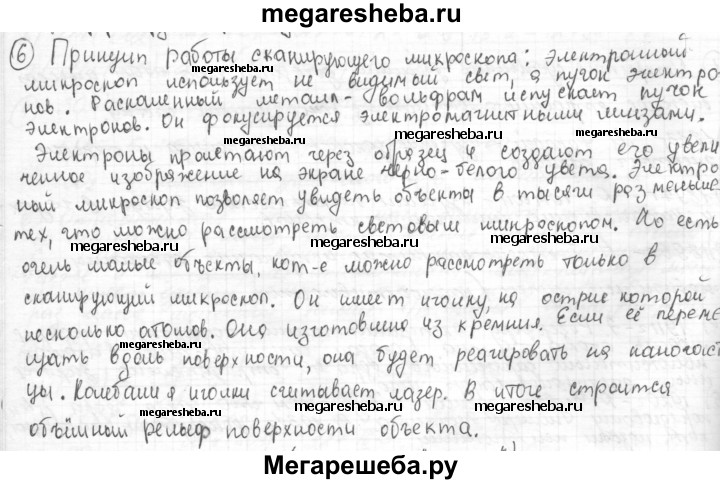 megaresheba.ru
6 Принцип работы сканирующего микроскопа: электронный
megaresheba.ru megaresheba.ru
микроскоп использует не видимый свет, а пучок электро
нов. Раскаленный металл - вольфрам испускает пучок
megaresheba.ru megaresheba.ru
электронов. Он фокусируется электромагнитными линзами.
megaresheba.ru megaresheba.ru
Электроны пролетают через образец и создают его увели
ченное изображение на экране черно-белого цвета. Электро
megaresheba.ru megaresheba.ru
ный микроскоп позволяет увидеть объекты в тысячи раз меньше
тех, что можно рассмотреть световым микроскопом. Но есть
megaresheba.ru megaresheba.ru megaresheba.ru
очень малые объекты, кот-е можно рассмотреть только в
сканирующий микроскоп. Он имеет иголку, на острие которой
megaresheba.ru megaresheba.ru
несколько атомов. Она изготовлена из кремния. Если её переме
щать вдоль поверхности, она будет реагировать на наночаст
megaresheba.ru megaresheba.ru
цы. Колебания иголки считывает лазер. В итоге строится
megaresheba.ru megaresheba.ru megaresheba.ru
объёмный рельеф поверхности объекта.
Мегарешеба.ру